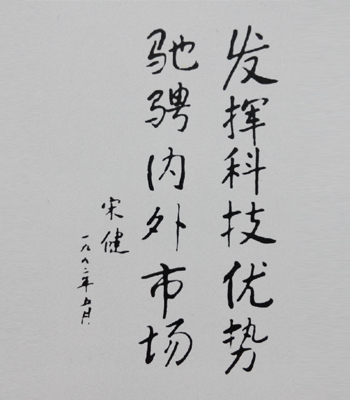 发挥科技优势
驰骋内外市场
宋健
一九九二年五月